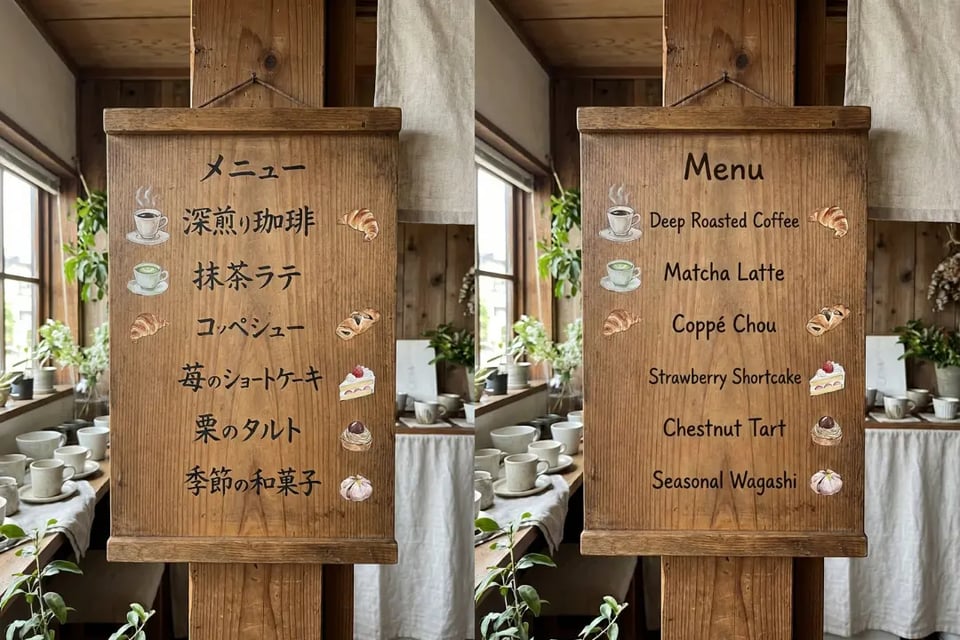 メニュー
深煎り珈琲
抹茶ラテ
コッペシュー
苺のショートケーキ
栗のタルト
季節の和菓子
Menu
Deep Roasted Coffee
Matcha Latte
Coppé Chou
Strawberry Shortcake
Chestnut Tart
Seasonal Wagashi